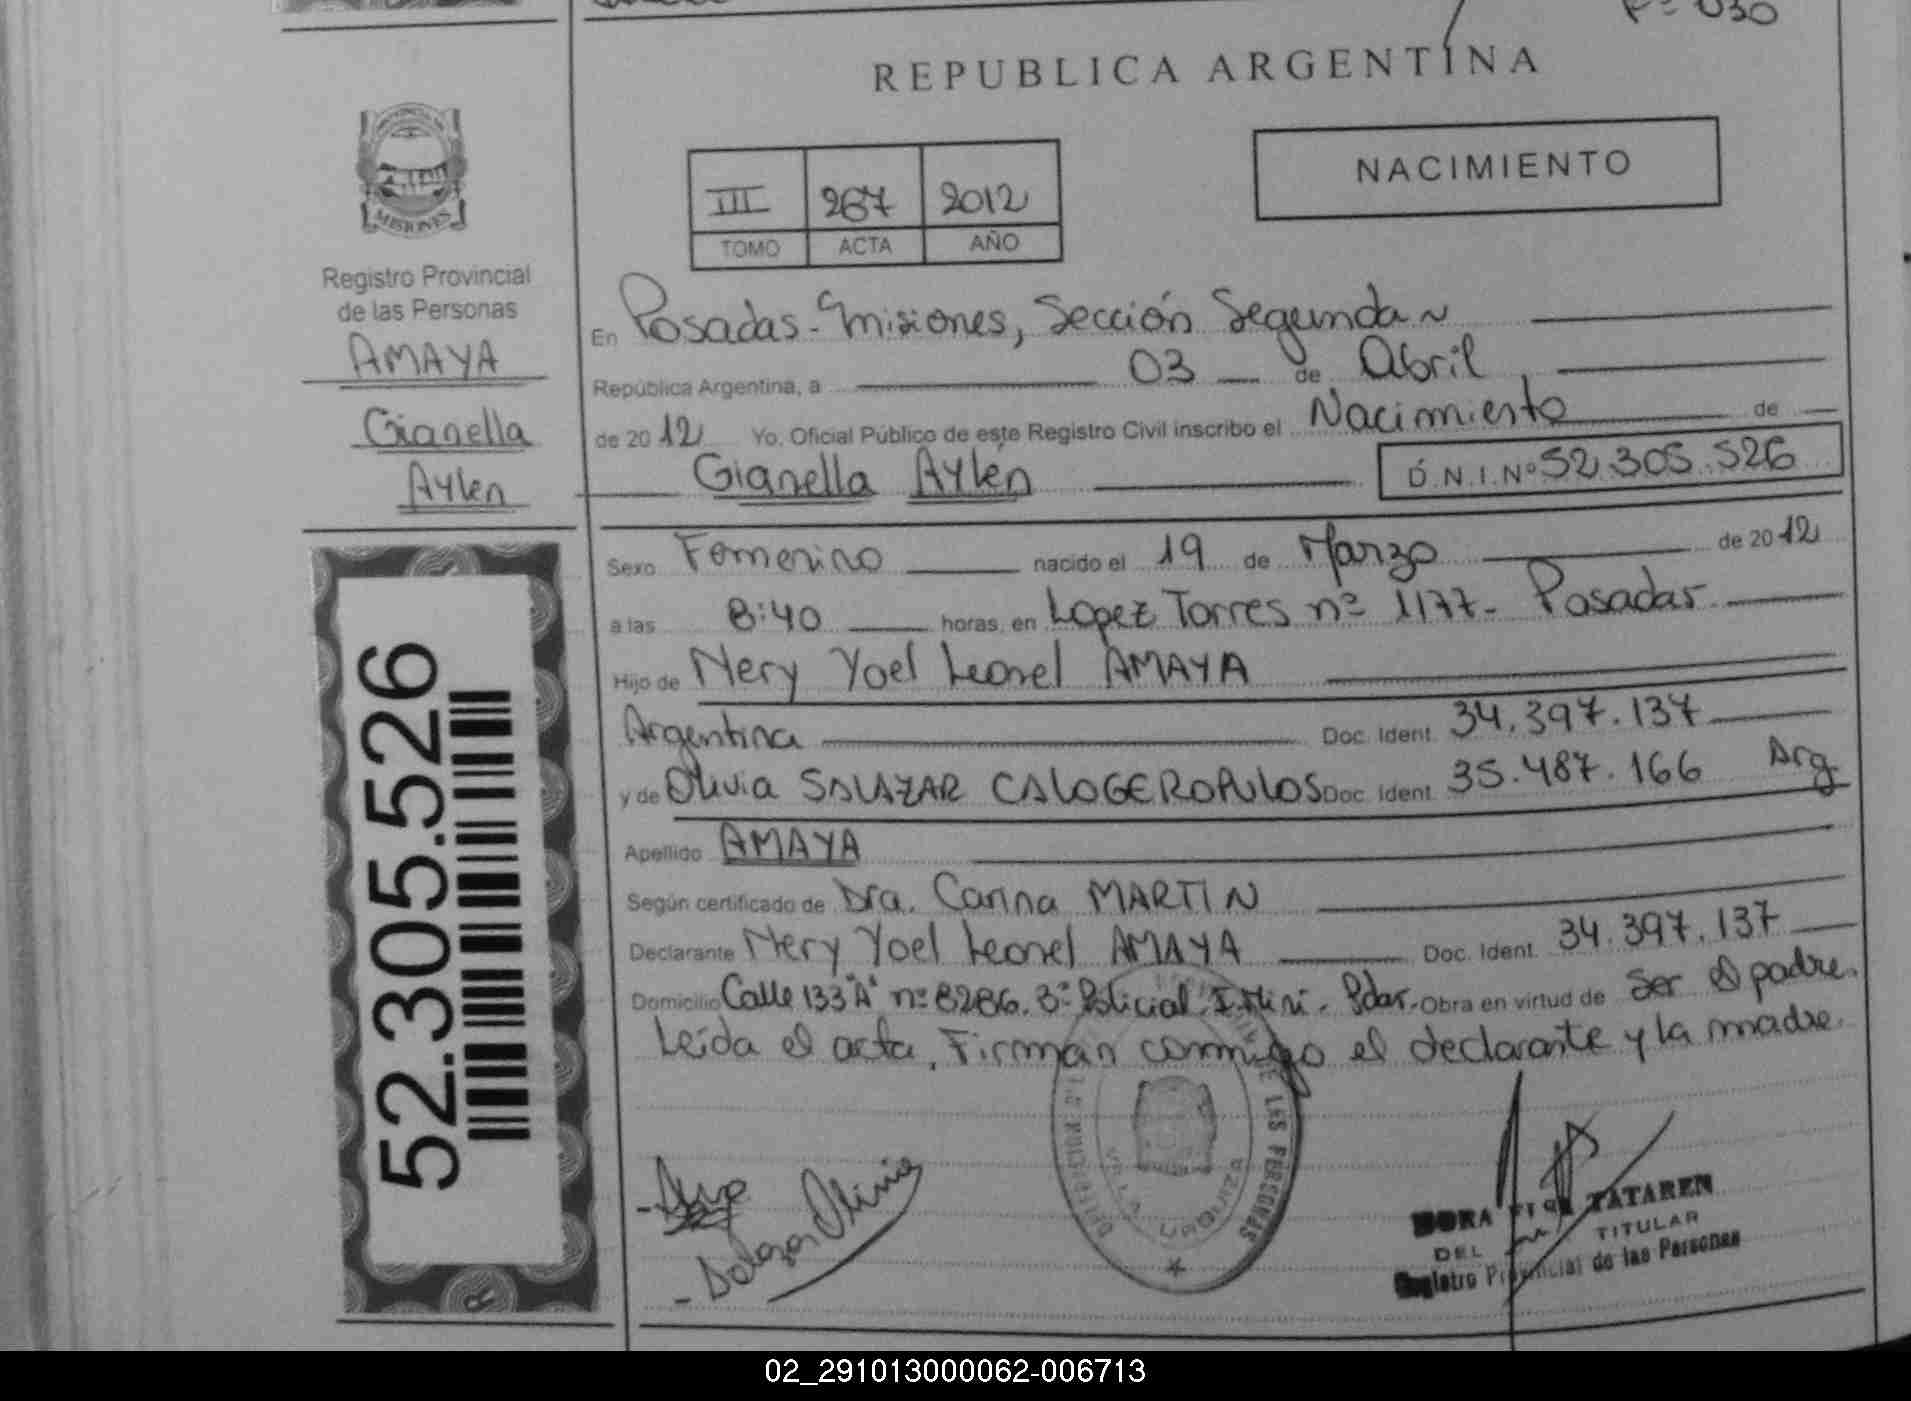 Fº 030
REPUBLICA ARGENTINA
NACIMIENTO
III 267 2012
TOMO ACTA AÑO
MISIONES
Registro Provincial
de las Personas
AMAYA
Gianella
Aylen
52.305.526
En Posadas - Misiones, Sección Segunda
República Argentina, a 03 de Abril
de 2012 Yo, Oficial Público de este Registro Civil inscribo el Nacimiento de
Gianella Aylén D.N.I. Nº 52.305.526
Sexo Femenino nacido el 19 de Marzo de 2012
a las 8:40 horas, en Lopez Torres nº 1177 - Posadas
Hijo de Nery Yoel Leonel AMAYA
Argentina Doc. Ident. 34.397.137
y de Olivia SALAZAR CALOGEROPULOS Doc. Ident. 35.487.166 Arg
Apellido AMAYA
Según certificado de Dra. Carina MARTIN
Declarante Nery Yoel Leonel AMAYA Doc. Ident. 34.397.137
Domicilio Calle 133 "A" nº 8286. Bº Policial. Pdas. Obra en virtud de ser el padre.
Leída el acta, Firman conmigo el declarante y la madre.
Salazar Olivia
DE LAS PERSONAS
TATAREN
DEL TITULAR
Registro Provincial de las Personas
02_291013000062-006713